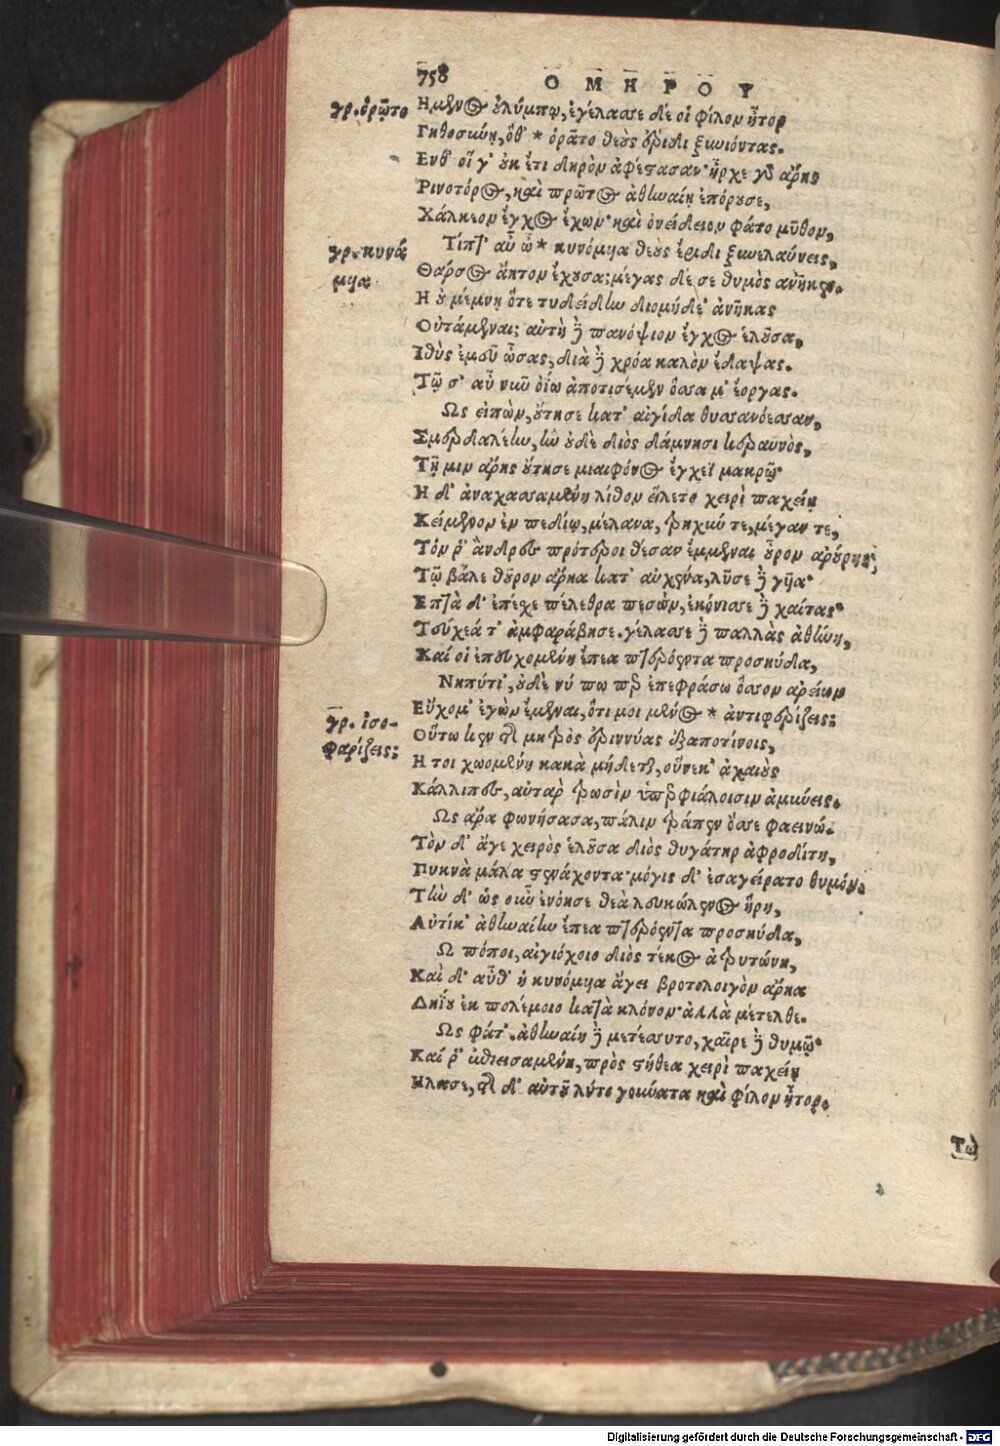 758
ΟΜΗΡΟΥ
γρ. ὁρᾶτο
Ημενος ὀλύμπῳ, ἐγέλασσε δέ οἱ φίλον ἦτορ
Γηθοσύνῃ, ὅθ' * ὁρᾶτο θεὸς ἔριδι ξυνιόντας.
Ενθ' οἵ γ' οὐκ ἔτι δηρὸν ἀφέστασαν· ἦρχε γὰρ ἄρης
Ρινοτόρος, καὶ πρῶτος ἀθηναίῃ ἐπόρουσε,
Χάλκεον ἔγχος ἔχων· καὶ ὀνείδειον φάτο μῦθον,
γρ. κυνά
μυα
Τίπτ' αὖ ὦ * κυνόμυα θεοὺς ἔριδι ξυνελαύνεις,
Θάρσος ἄητον ἔχουσα; μέγας δέ σε θυμὸς ἀνῆκεν.
Η οὐ μέμνῃ ὅτε τυδείδην διομήδε' ἀνῆκας
Οὐτάμεναι; αὐτὴ δὲ πανόψιον ἔγχος ἑλοῦσα,
Ἰθὺς ἐμοῦ ὦσας, διὰ δὲ χρόα καλὸν ἔδαψας.
Τῷ σ' αὖ νῦν ὀΐω ἀποτισέμεν ὅσσα μ' ἔοργας.
Ως εἰπὼν, οὔτησε κατ' αἰγίδα θυσσανόεσσαν,
Σμερδαλέην, ἣν οὐδὲ διὸς δάμνησι κεραυνὸς,
Τῇ μιν ἄρης οὔτησε μιαιφόνος ἔγχεϊ μακρῷ·
Η δ' ἀναχασσαμένη λίθον εἵλετο χειρὶ παχείῃ
Κείμενον ἐν πεδίῳ, μέλανα, τρηχύν τε, μέγαν τε,
Τόν ῥ' ἄνδρες πρότεροι θέσαν ἔμμεναι οὖρον ἀρούρης,
Τῷ βάλε θοῦρον ἄρηα κατ' αὐχένα, λῦσε δὲ γυῖα·
Επτὰ δ' ἐπέσχε πέλεθρα πεσὼν, ἐκόνισσε δὲ χαίτας·
Τεύχεά τ' ἀμφαράβησε. γέλασσε δὲ παλλὰς ἀθήνη,
Καί οἱ ἐπευχομένη ἔπεα πτερόεντα προσηύδα,
Νηπύτι', οὐδὲ νύ πω περ ἐπεφράσω ὅσσον ἀρείων
γρ. ἰσο-
φαρίζεις;
Εὔχομ' ἐγὼν ἔμεναι, ὅτι μοι μένος * ἀντιφερίζεις;
Οὕτω κεν τῆς μητρὸς ἐριννύας ἐξαποτίνοις,
Η τοι χωομένη κακὰ μήδεται, οὕνεκ' ἀχαιοὺς
Κάλλιπες, αὐτὰρ τρωσὶν ὑπερφιάλοισιν ἀμύνεις.
Ως ἄρα φωνήσασα, πάλιν τράπεν ὄσσε φαεινώ.
Τὸν δ' ἄγε χειρὸς ἑλοῦσα διὸς θυγάτηρ ἀφροδίτη,
Πυκνὰ μάλα στενάχοντα· μόγις δ' ἐσαγείρατο θυμόν.
Τὴν δ' ὡς οὖν ἐνόησε θεὰ λευκώλενος ἥρη,
Αὐτίκ' ἀθηναίην ἔπεα πτερόεντα προσηύδα,
Ω πόποι, αἰγιόχοιο διὸς τέκος ἀτρυτώνη,
Καὶ δ' αὖθ' ἡ κυνόμυα ἄγει βροτολοιγὸν ἄρηα
Δηΐου ἐκ πολέμοιο κατὰ κλόνον· ἀλλὰ μέτελθε.
Ως φάτ'. ἀθηναίη δὲ μετέσσυτο, χαῖρε δὲ θυμῷ·
Καί ῥ' ἐπιεισαμένη, πρὸς στήθεα χειρὶ παχείῃ
Ηλασε, τῆς δ' αὐτοῦ λύτο γούνατα καὶ φίλον ἦτορ.
Τὼ
2
Digitalisierung gefördert durch die Deutsche Forschungsgemeinschaft - DFG